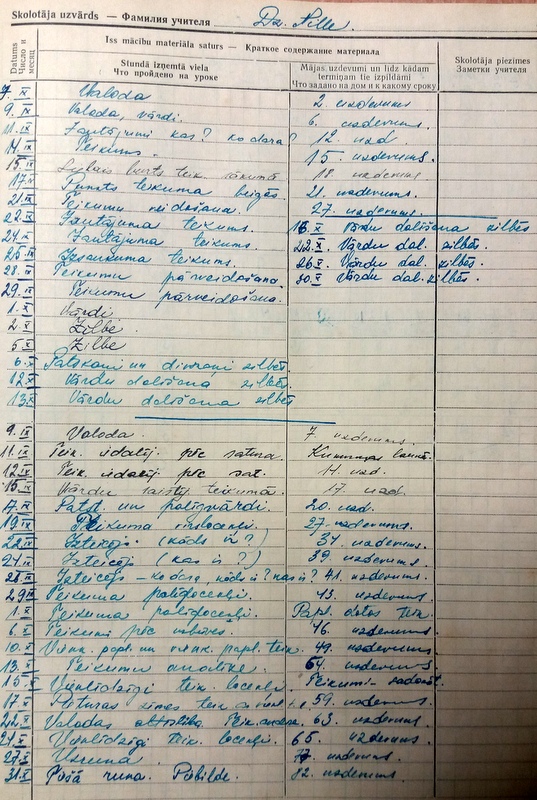 Skolotāja uzvārds — Фамилия учителя Dz. Nille.
Datums Число и месяц
Iss mācību materiala saturs — Краткое содержание материала
Skolotāja piezīmes Заметки учителя
Stundā izņemtā viela Что пройдено на уроке
Mājas uzdevumi un līdz kādam termiņam tie izpildāmi Что задано на дом и к какому сроку
7. IX Valoda 2. uzdevums
9. IX Valoda, vārdi. 6. uzdevums.
11. IX Jautājumi kas? ko dara? 12. uzd.
14. IX Teikums. 15. uzdevums.
15. IX Lielais burts teik. sākumā. 18. uzdevums
17. IX Punkts teikuma beigās. 21. uzdevums.
21. IX Teikumu veidošana. 27. uzdevums.
22. IX Jautājuma teikums. 16. X Vārdu dalīšana zilbēs
24. IX Jautājuma teikums. 22. X. Vārdu dal. zilbēs.
25. IX Izsaukuma teikums. 26. X. Vārdu dal. zilbēs.
28. IX Teikumu pārveidošana. 30. X. Vārdu dal. zilbēs.
29. IX Teikumu pārveidošana.
1. X Vārdi.
2. X Zilbe.
5. X Zilbe
6. X Patskani un divskani zilbēs.
12. X Vārdu dalīšana zilbēs.
13. X Vārdu dalīšana zilbēs
9. IX Valoda. 7. uzdevums.
11. IX Teik. iedalīj. pēc satura
12. IX Teik. iedalīj. pēc sat. 14. uzd.
15. IX Vārdu saistīj. teikumā. 17. uzd.
17. IX Patst. un palīgvārdi. 20. uzd.
19. IX Teikuma virslocekļi. 27. uzdevums.
22. IX Izteicējs (kāds ir?) 34. uzdevums.
24. IX Izteicējs (kas ir?) 39. uzdevums.
26. IX Izteicējs — ko dara, kāds ir? kas ir? 41. uzdevums.
29. IX Teikuma palīglocekļi. 43. uzdevums.
1. X Teikuma palīglocekļi. Papl. dotos teik.
6. X Teikumi pēc 46. uzdevums.
10. X Vienk. papl. un vienk. nepapl. teik. 49. uzdevums.
13. X Teikumu analīze. 54. uzdevums.
15. X Vienlīdzīgi teik. locekļi. Teikumi
17. X Pieturas zīmes teik. 59. uzdevums.
22. X Valodas attīstība. Teik. 63. uzdevums.
24. X Vienlīdzīgi teik. locekļi. 65. uzdevums.
27. X Uzruna. uzdevums.
31. X Tiešā runa. Pārbilde. 82. uzdevums.